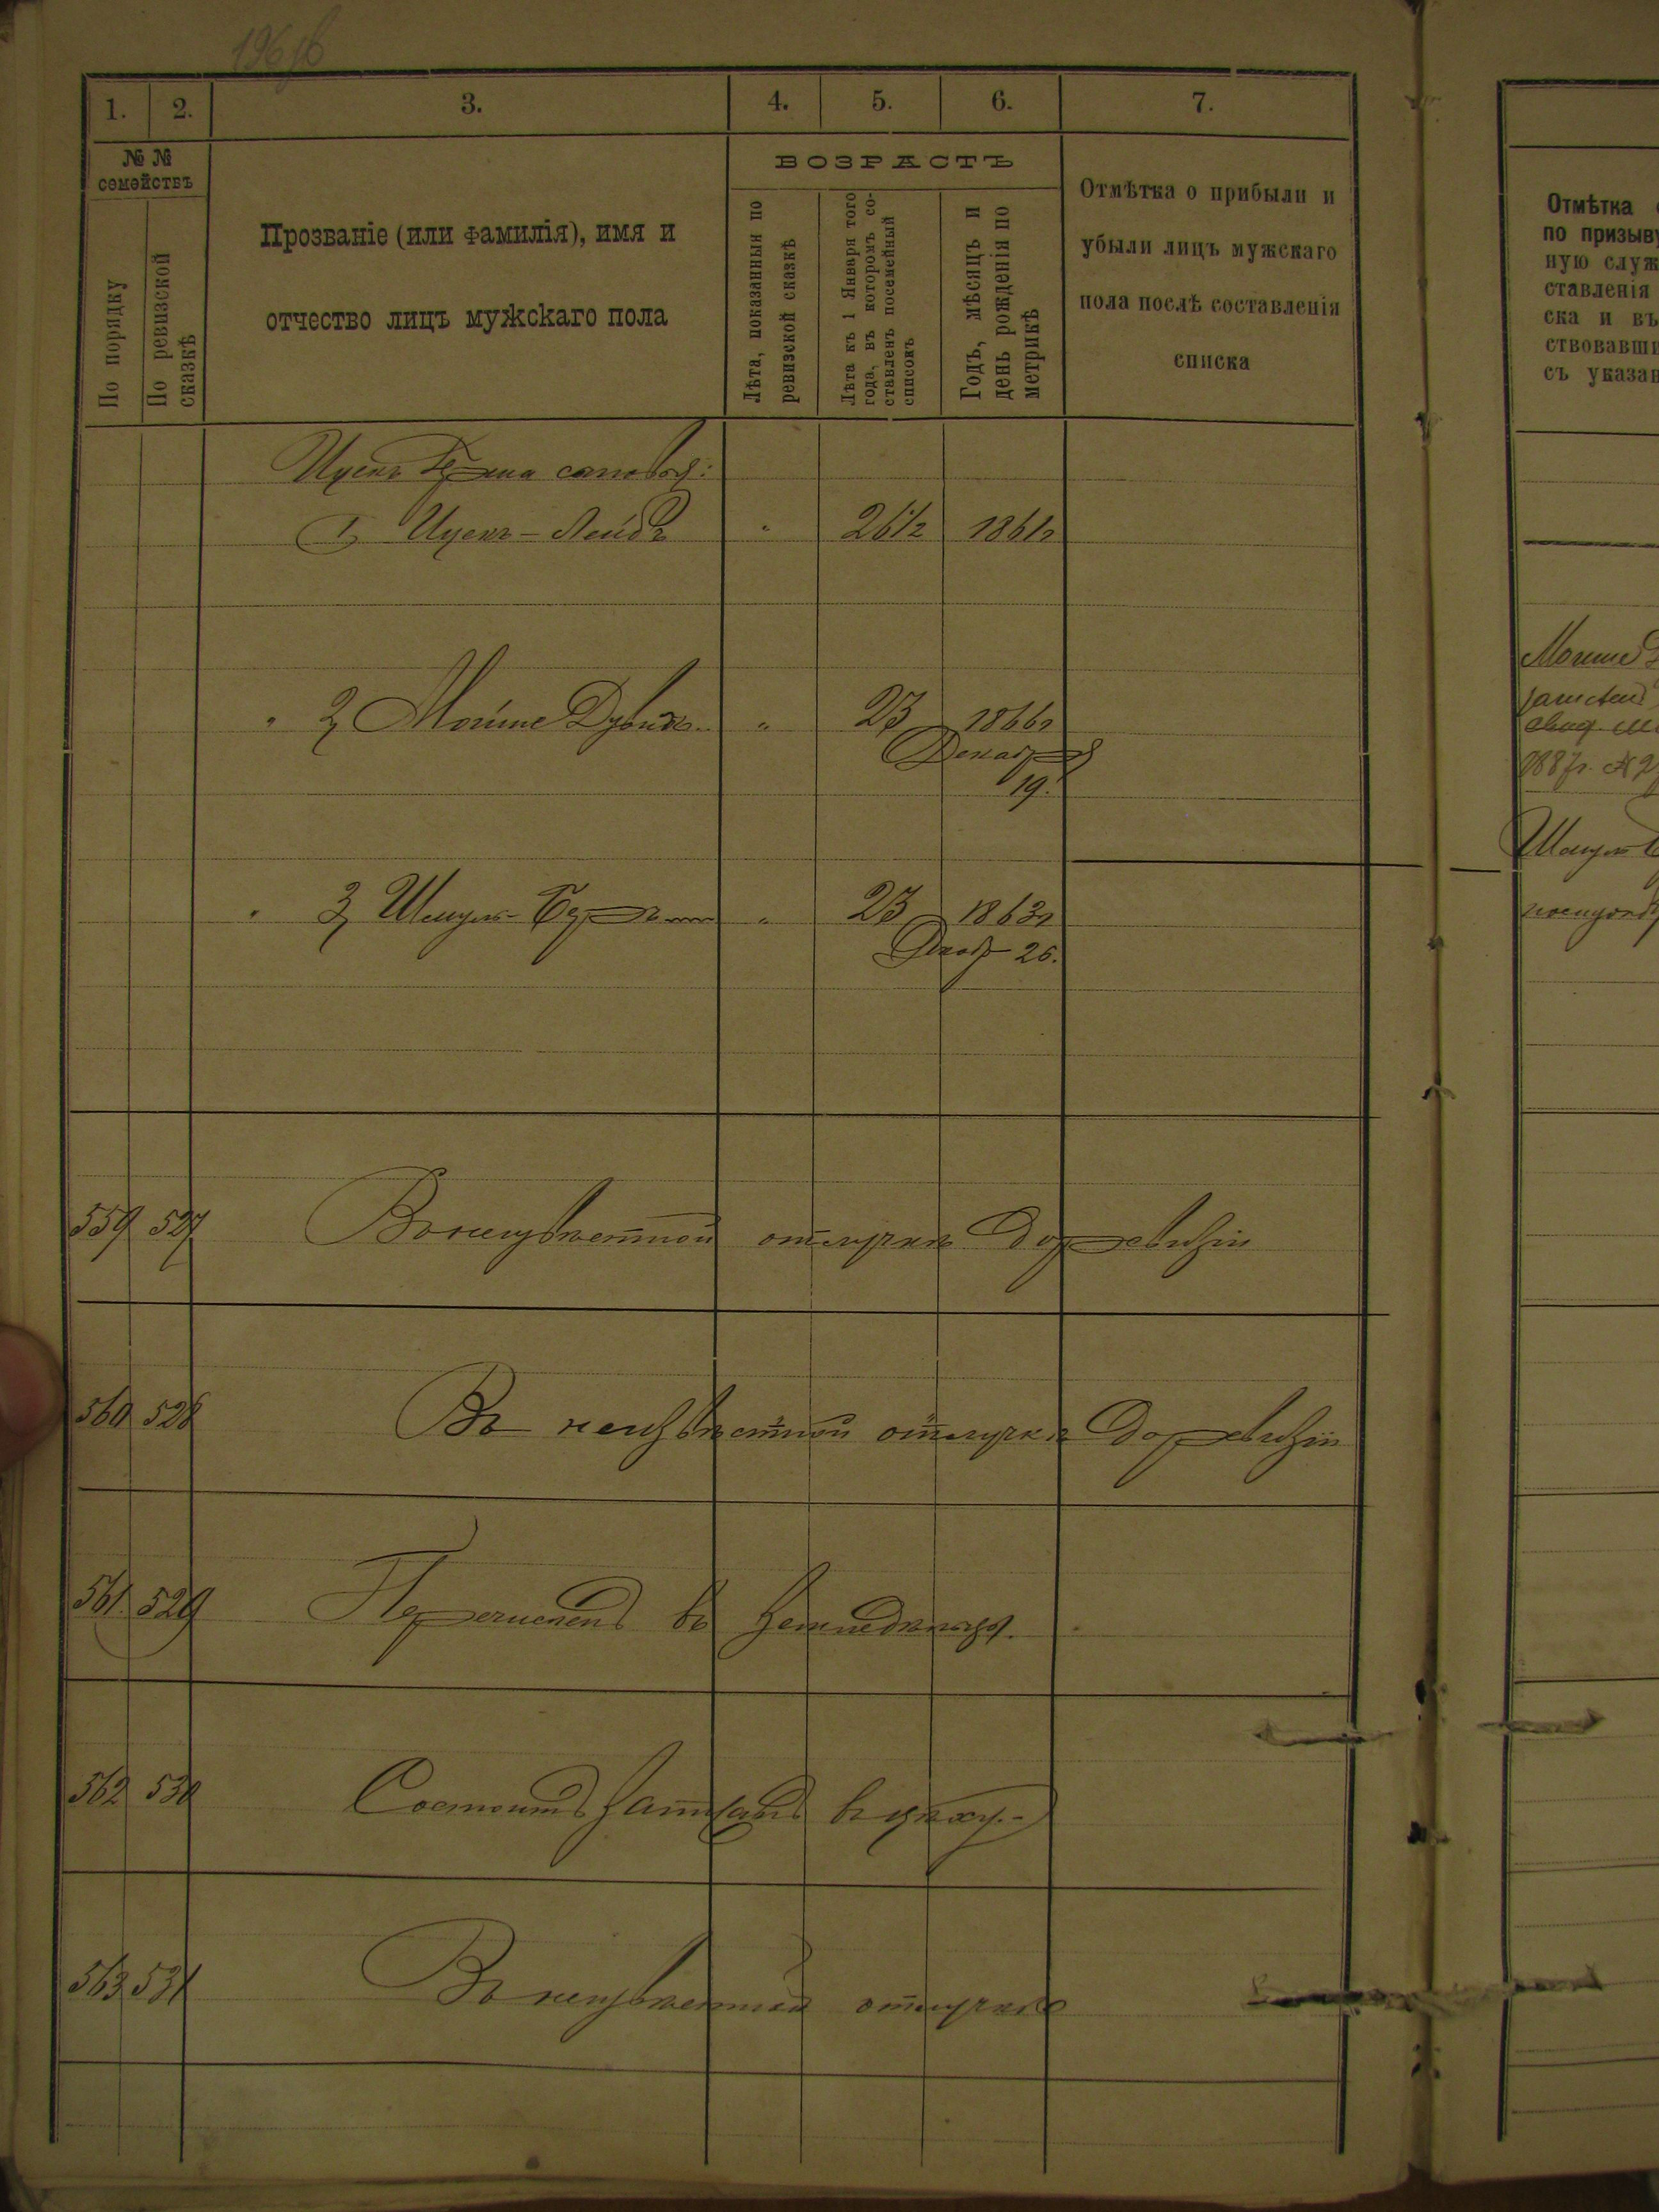 1. 2. 3. 4. 5. 6. 7.
№ №
семействъ
По порядку
По ревизской
сказкѣ
Прозваніе (или фамилія), имя и
отчество лицъ мужскаго пола
ВОЗРАСТЪ
Лѣта, показанныя по
ревизской сказкѣ
Лѣта къ 1 Января того
года, въ которомъ со-
ставленъ посемейный
списокъ
Годъ, мѣсяцъ и
день рожденія по
метрикѣ
Отмѣтка о прибыли и
убыли лицъ мужскаго
пола послѣ составленія
списка
Ицекъ сыновья:
1, Ицекъ-Лейбъ " 26½ 1861г
" 2, Мойше Дувидъ " 23 1866г
Декабря
19.
" 3, Шмуль- " 23 1863г
Декаб 26.
559 527 Въ неизвѣстной отлучкѣ до ревизіи
560 528 Въ неизвѣстной отлучкѣ до ревизіи
561 529 Перечисленъ въ земледѣльцы.
562 530 Состоитъ въ цеху.
563 531 Въ неизвѣстной отлучкѣ
Отмѣтка
по призыву
ную служ
ставленія
ска и въ
ствовавши
съ указан
Мойше
1887г. №